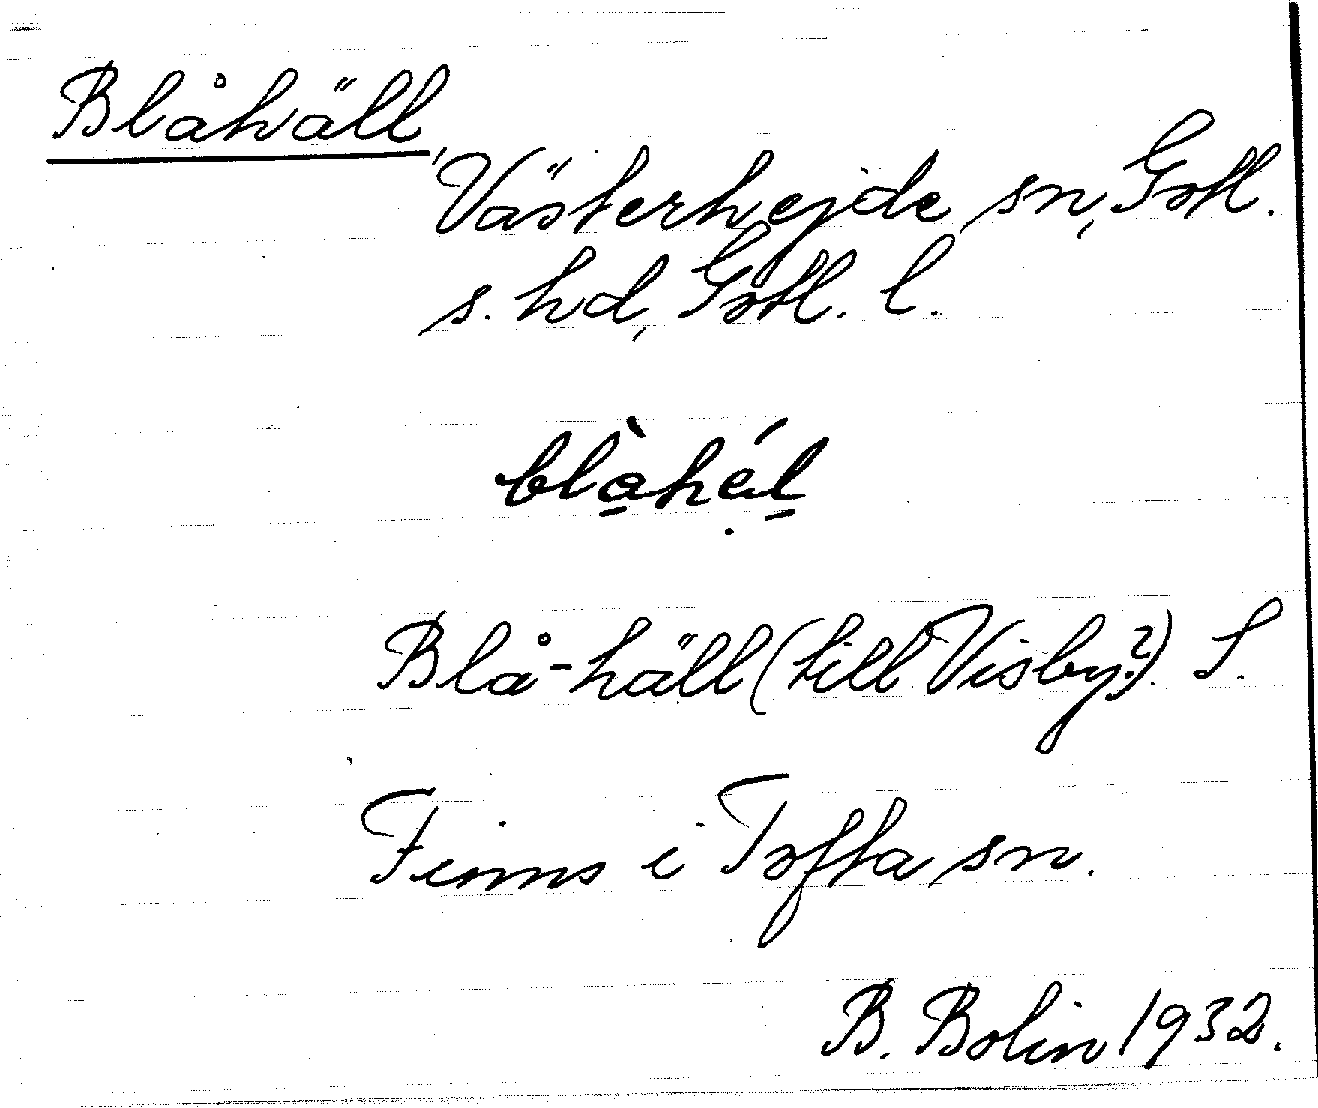 Blåhäll,
Västerhejde sn, Gotl.
s. hd, Gotl. l.
blàhál
Blå-häll (till Visby?). S.
Finns i Tofta sn.
B. Bolin 1932.